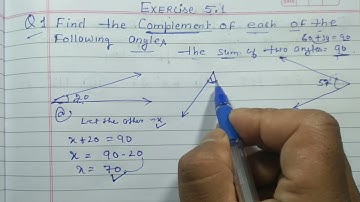 Exercise 5.1
Q1 Find the Complement of each of the
Following Angles
60+30=90
The sum of two angles=90
20
57
@,
Let the other =x
x+20 = 90
x = 90-20
x = 70